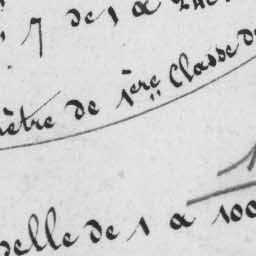 7 de 1 a
être de 1ère Classe d
elle de 1 a 100